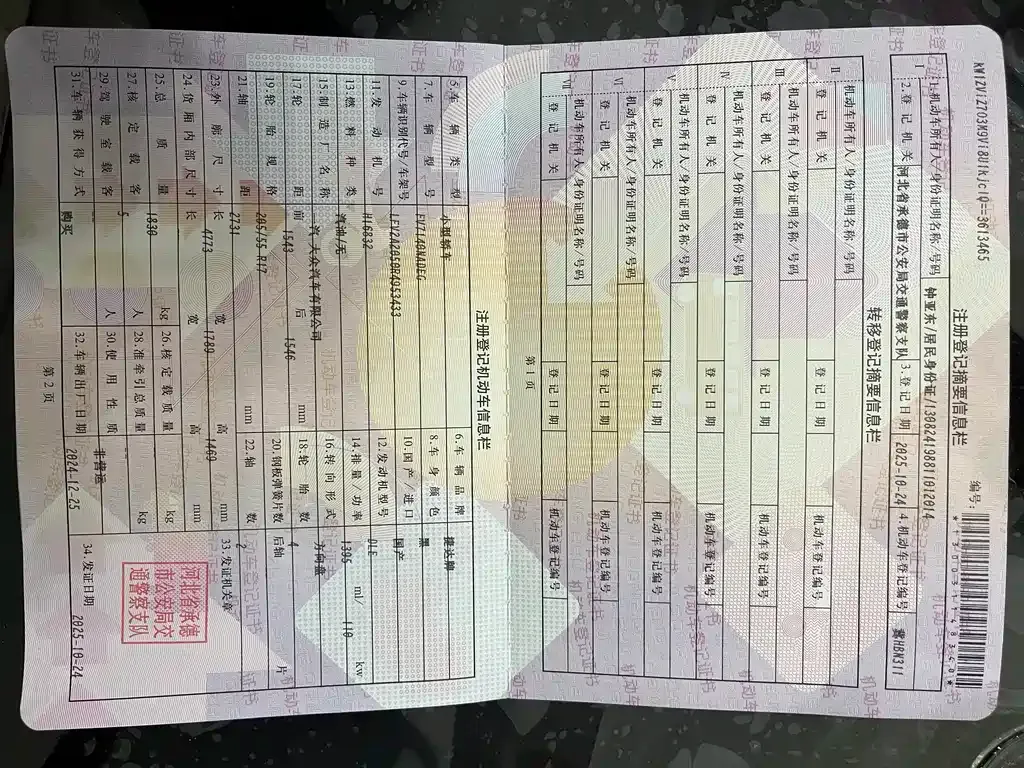 KW1ZV1Z703K9V18U1kjc1Q==3613465
注册登记摘要信息栏
编号:
I 1.机动车所有人/身份证明名称/号码 钟亚东/居民身份证/130824198811012014
2.登记机关 河北省承德市公安局交通警察支队 3.登记日期 2025-10-24 4.机动车登记编号 冀HBN311
转移登记摘要信息栏
II 机动车所有人/身份证明名称/号码
登记机关 登记日期 机动车登记编号
III 机动车所有人/身份证明名称/号码
登记机关 登记日期 机动车登记编号
IV 机动车所有人/身份证明名称/号码
登记机关 登记日期 机动车登记编号
V 机动车所有人/身份证明名称/号码
登记机关 登记日期 机动车登记编号
VI 机动车所有人/身份证明名称/号码
登记机关 登记日期 机动车登记编号
VII 机动车所有人/身份证明名称/号码
登记机关 登记日期 机动车登记编号
第 1 页
注册登记机动车信息栏
5.车辆类型 小型轿车 6.车辆品牌 捷达牌
7.车辆型号 FV7140NADEG 8.车身颜色 黑
9.车辆识别代号/车架号 LFV2A2BS0R4953433 10.国产/进口 国产
11.发动机号 H16832 12.发动机型号 DLE
13.燃料种类 汽油/无 14.排量/功率 1395 ml/ 110 kw
15.制造厂名称 一汽-大众汽车有限公司 16.转向形式 方向盘
17.轮距 前 1543 后 1546 mm 18.轮胎数 4
19.轮胎规格 205/55 R17 20.钢板弹簧片数 后轴 片
21.轴距 2731 mm 22.轴数 2
23.外廓尺寸 长 4773 宽 1789 高 1469 mm 33.发证机关章
24.货厢内部尺寸 长 宽 高 mm
25.总质量 1830 kg 26.核定载质量 kg
27.核定载客 5 人 28.准牵引总质量 kg
29.驾驶室载客 人 30.使用性质 非营运
31.车辆获得方式 购买 32.车辆出厂日期 2024-12-25 34.发证日期 2025-10-24
河北省承德
市公安局交
通警察支队
第 2 页